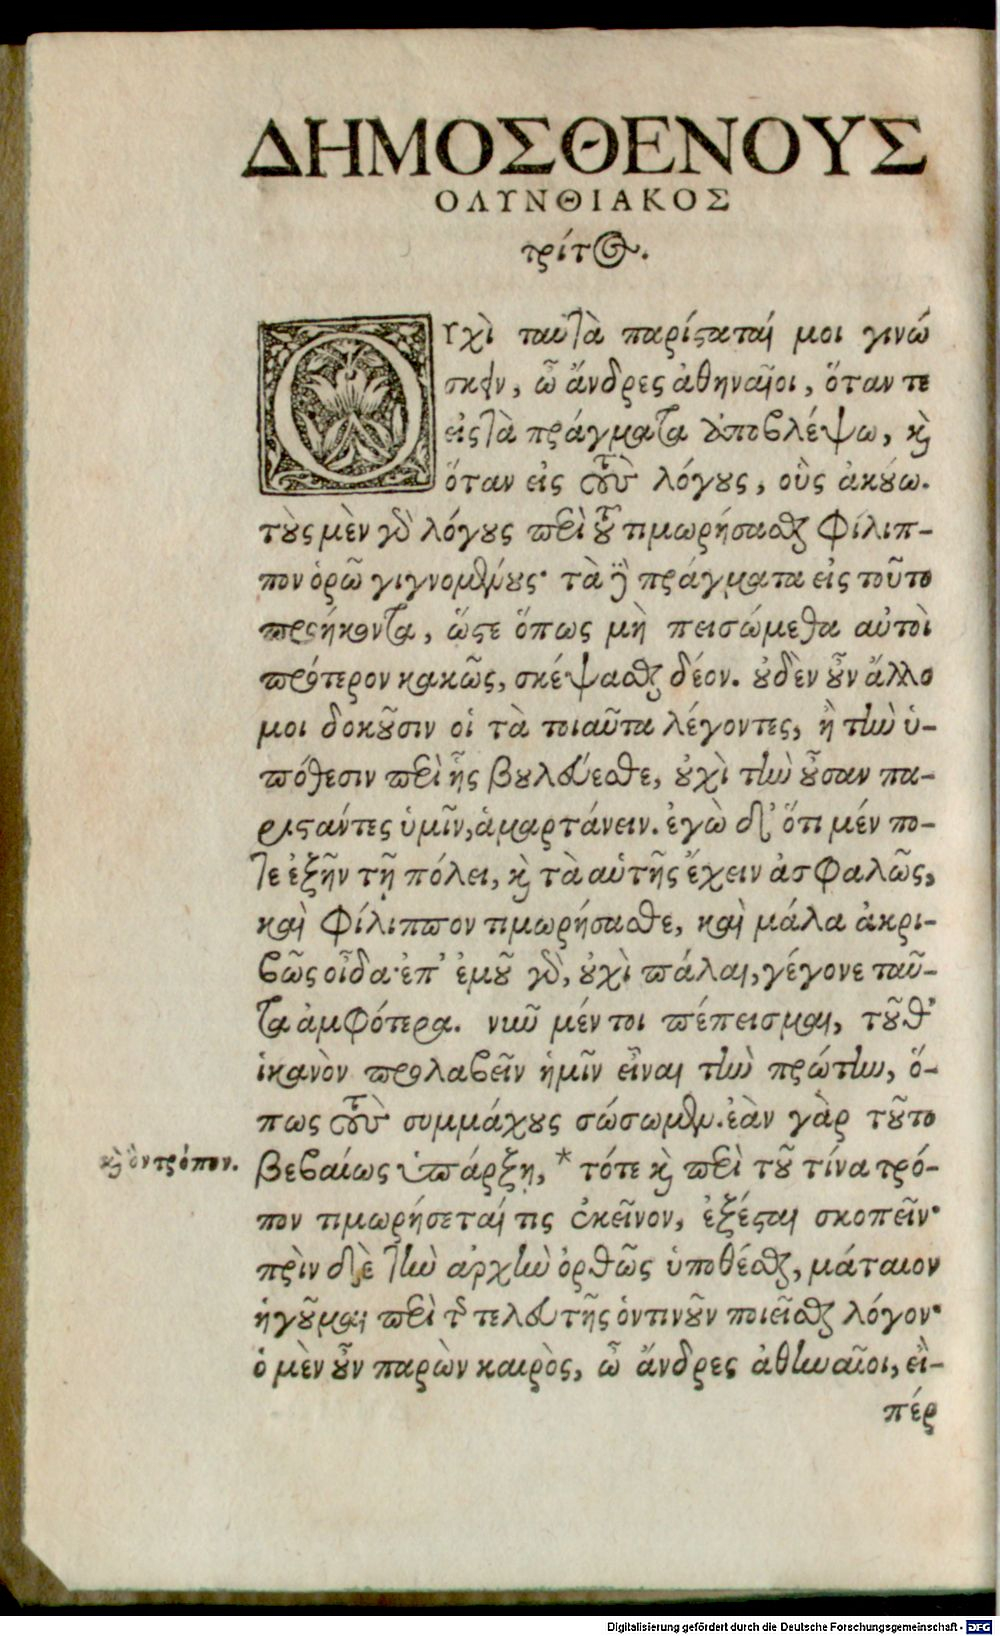 ΔΗΜΟΣΘΕΝΟΥΣ
ΟΛΥΝΘΙΑΚΟΣ
τρίτος.
ΟΥχὶ ταυτὰ παρίσταταί μοι γινώ
σκειν, ὦ ἄνδρες ἀθηναῖοι, ὅταν τε
εἰς τὰ πράγματα ἀποβλέψω, καὶ
ὅταν εἰς τοὺς λόγους, οὓς ἀκούω.
τοὺς μὲν γὰρ λόγους περὶ τοῦ τιμωρήσασθαι Φίλιπ-
πον ὁρῶ γιγνομένους· τὰ δὲ πράγματα εἰς τοῦτο
προήκοντα, ὥστε ὅπως μὴ πεισώμεθα αὐτοὶ
πρότερον κακῶς, σκέψασθαι δέον. οὐδὲν οὖν ἄλλο
μοι δοκοῦσιν οἱ τὰ τοιαῦτα λέγοντες, ἢ τὴν ὑ-
πόθεσιν περὶ ἧς βουλεύεσθε, οὐχὶ τὴν οὖσαν πα-
ριστάντες ὑμῖν, ἁμαρτάνειν. ἐγὼ δ' ὅτι μέν πο-
τε ἐξῆν τῇ πόλει, καὶ τὰ αὑτῆς ἔχειν ἀσφαλῶς,
καὶ Φίλιππον τιμωρήσασθε, καὶ μάλα ἀκρι-
βῶς οἶδα· ἐπ' ἐμοῦ γὰρ, οὐχὶ πάλαι, γέγονε ταῦ-
τα ἀμφότερα. νυῦ μέν τοι πέπεισμαι, τοῦθ'
ἱκανὸν προλαβεῖν ἡμῖν εἶναι τὴν πρώτην, ὅ-
πως τοὺς συμμάχους σώσωμεν. ἐὰν γὰρ τοῦτο
βεβαίως ὑπάρξῃ, * τότε καὶ περὶ τοῦ τίνα τρό-
καὶ ὃν τρόπον.
πον τιμωρήσεταί τις ἐκεῖνον, ἐξέσται σκοπεῖν·
πρὶν δὲ τὴν ἀρχὴν ὀρθῶς ὑποθέσθαι, μάταιον
ἡγοῦμαι περὶ τῆς τελευτῆς ὁντινοῦν ποιεῖσθαι λόγον·
ὁ μὲν οὖν παρὼν καιρὸς, ὦ ἄνδρες ἀθηναῖοι, εἴ-
πέρ
Digitalisierung gefördert durch die Deutsche Forschungsgemeinschaft - DFG